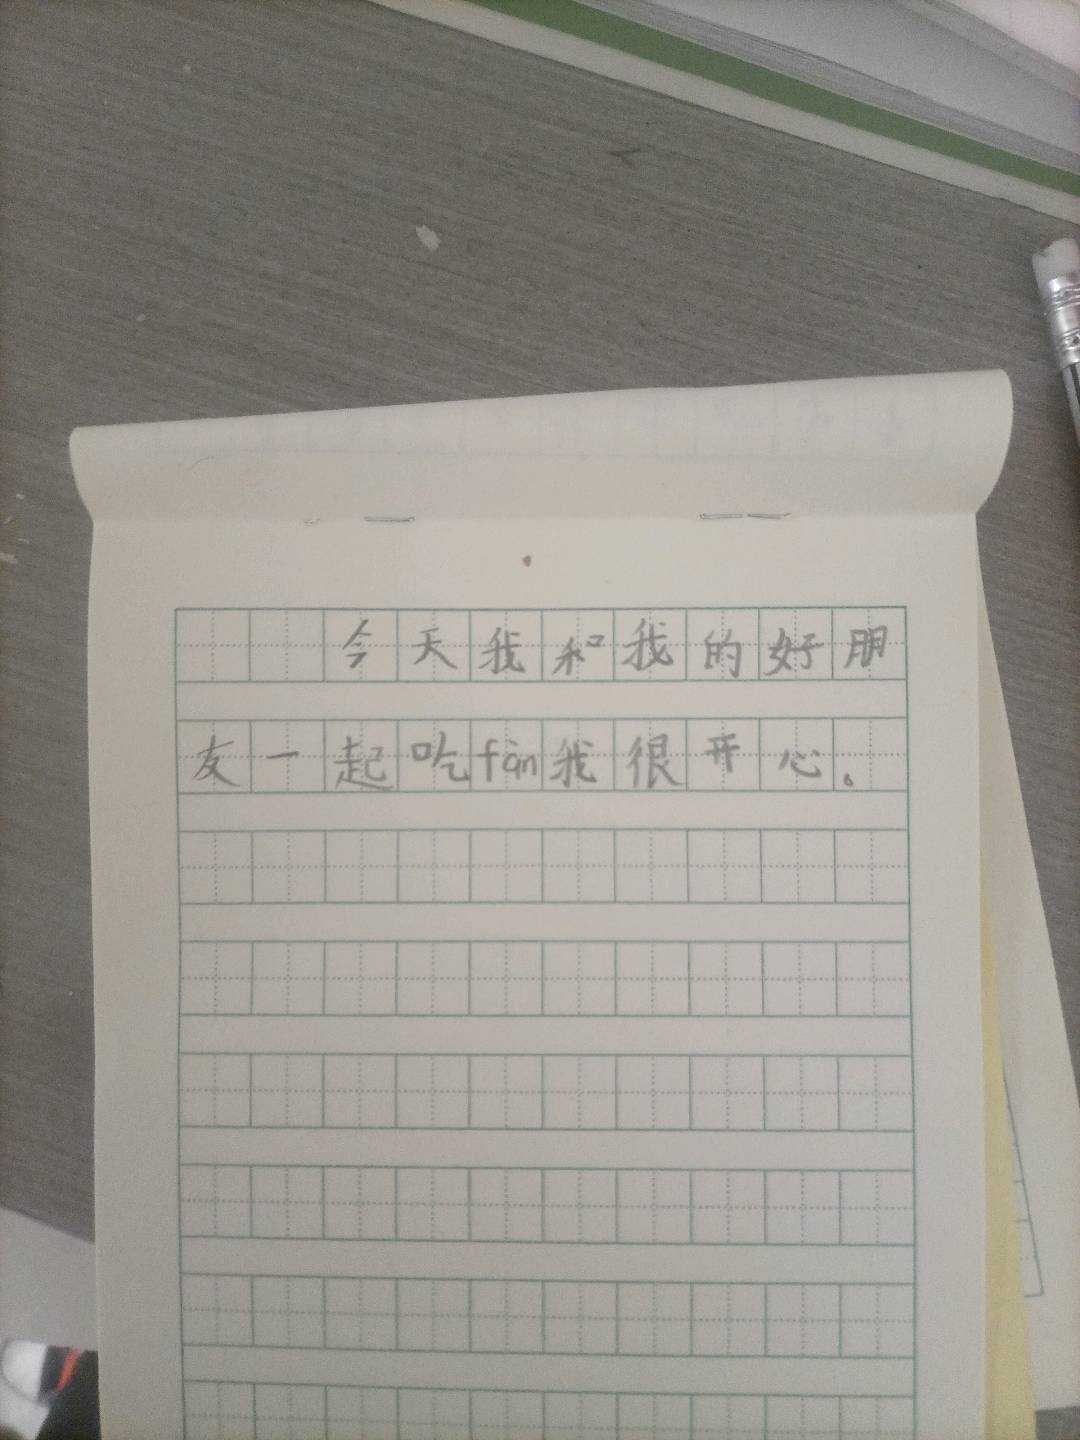 今天我和我的好朋
友一起吃fàn我很开心。